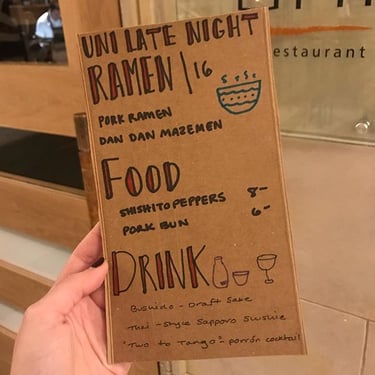 UNI LATE NIGHT
RAMEN | 16
PORK RAMEN
DAN DAN MAZEMEN
FOOD
SHISHITO PEPPERS 8-
PORK BUN 6-
DRINK
Bushido - Draft Sake
Thai - Style Sapporo Slushie
"Two to Tango" - porrón cocktail
estaurant